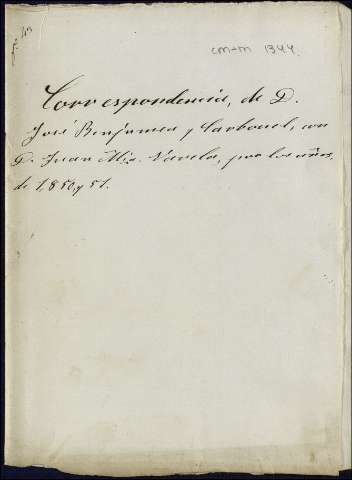 cm-m 1344.
Correspondencia, de D.
José Benjumea y Carbonel, con
D. Juan Mª. Varela, por los años,
de 1,850, y 51.